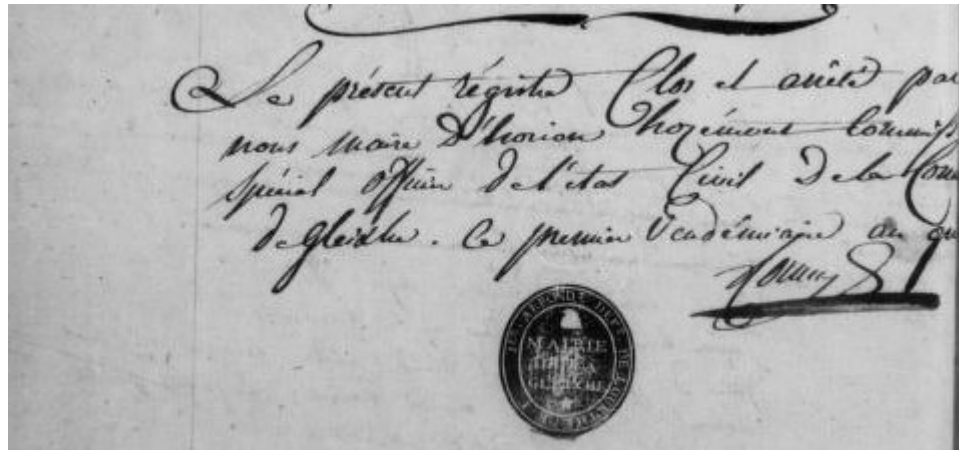 Le présent régistre Clos et arrêté par
nous maire D'horion hozémont Commiss
spécial officier de l'état Civil De la Com
de gleixhe. Ce premier Vendémiaire an
MAIRIE
DE LA
GLEIXHE